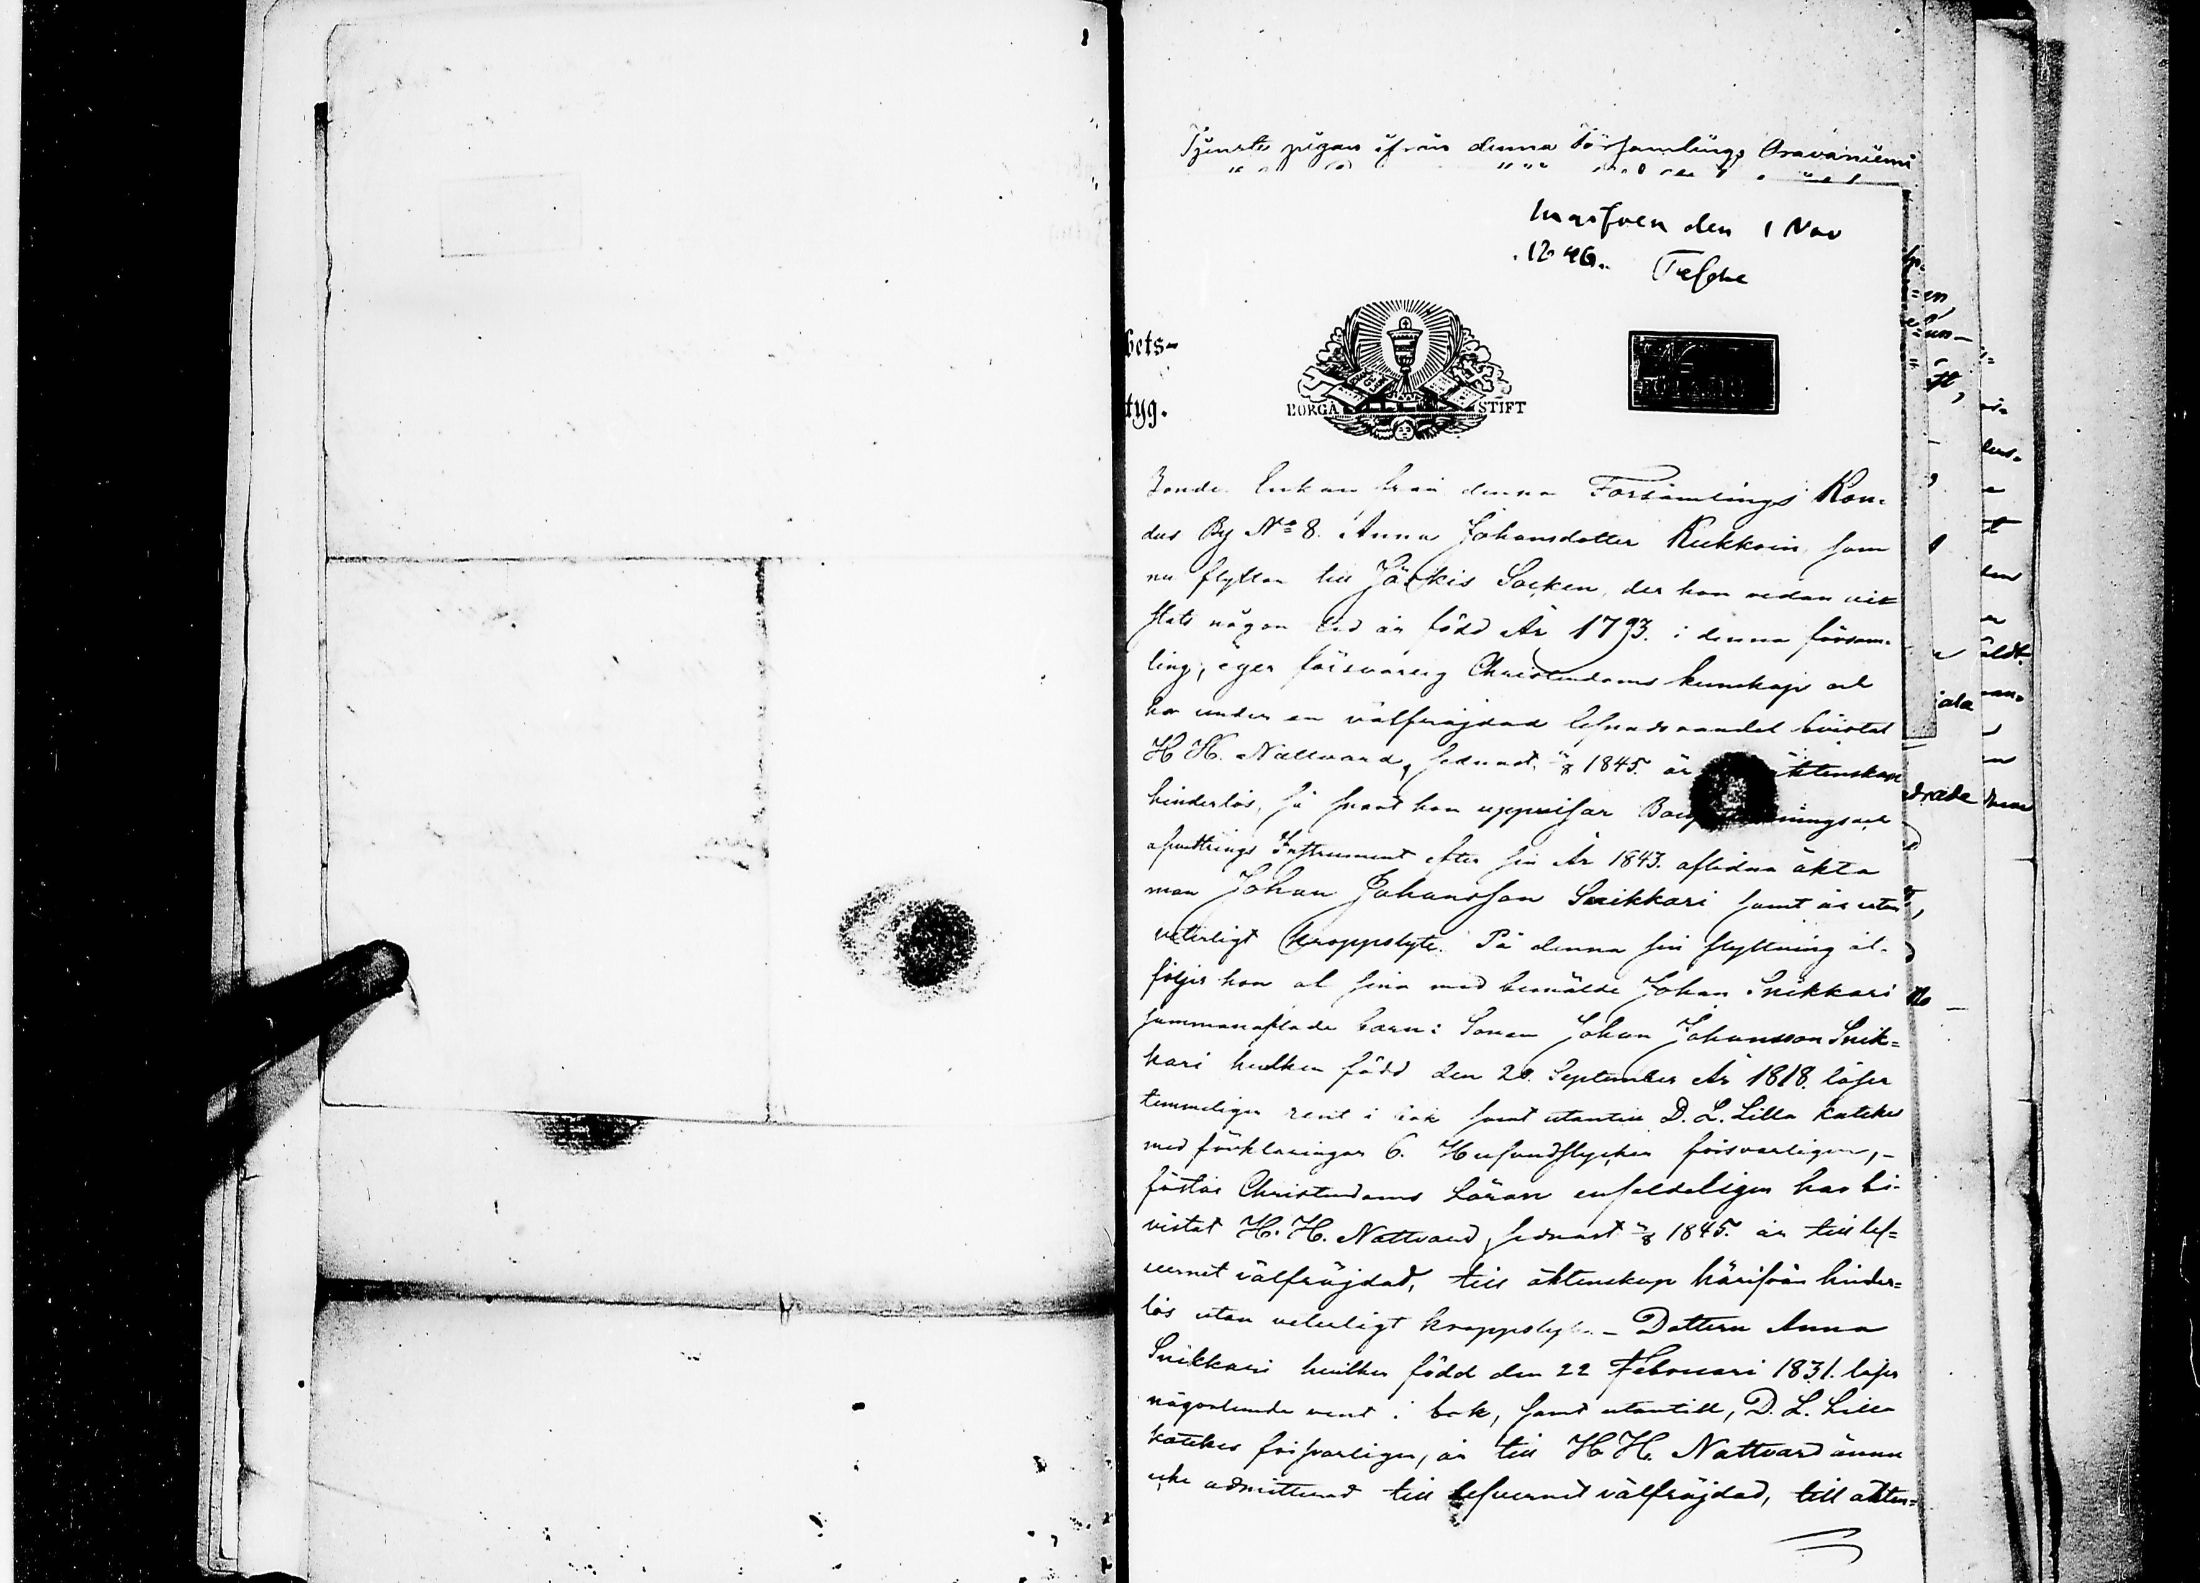 Tjenste pigan ifrån denna Församlings Oravaniemi
den 1 Nov
1846.
bets-
tyg.
BORGÅ STIFT
Bonde Enkan från denna Församlings Kon-
dus By No 8. Anna Johansdotter Kukkoin, som
nu flyttar till Jäskis Socken, der hon redan vis
stats någon tid är född År 1793. i denna försam-
ling, eger försvarlig Christendoms kunskap och
har under en välfräjdad lefnadsvandel bivistat
H H. Nattvard, sednast 1845. är äktenskap
hinderlös, så snart hon uppvisar
afvittrings Instrument efter sin År 1843. aflidna äkta
man Johan Johansson Snikkari samt är utan
veterligt kroppslyte. På denna sin flyttning åt-
följes hon af sina med bemälde Johan Snikkari
sammanaflade barn: Sonen Johan Johansson Snik-
kari hvilken född den 20. September År 1818. läser
temmeligen rent i bok samt utantill D. L. Lilla Kateches
med förklaringar 6. Hufvudstycken försvarligen,-
förstår Christendoms Läran enfaldeligen har bi-
vistat H. H. Nattvard, sednast 1845. är till lef-
vernet välfräjdad, till äktenskap härifrån hinder-
lös utan veterligt kroppslyte - Dottern Anna
Snikkari hvilken född den 22 Februari 1831. läser
någorlunda rent i bok, samt utantill, D. L. Lilla
kateches försvarligen, är till H H. Nattvard ännu
icke admitterad till lefvernet välfräjdad, till äkten-